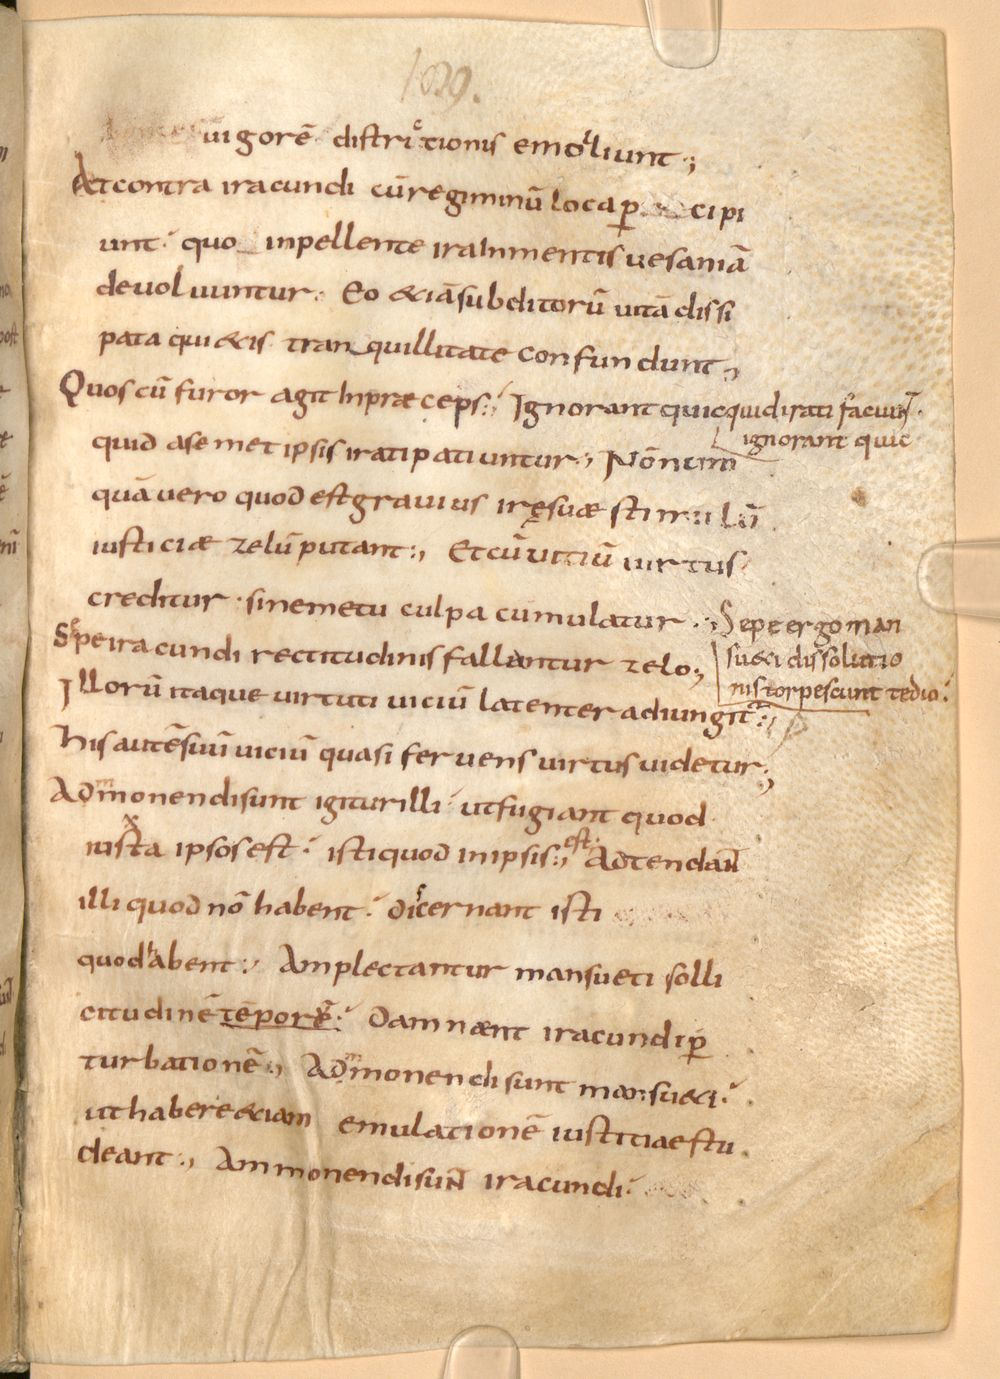 1029.
uigorē distri^c tionis emo^lliunt·;
At contra iracundi cū regiminū loca ꝑ cipi
unt· quo inpellente ira Inmentis uesaniā
deuoluuntur· Eo &iā subditorū uitā dissi
pata qui&is tranquillitate confundunt·,
Quos cū furor agit Inpræceps·, Ignorant quic quid irati faciunt·
ignorant quic
quid asemet ipsis irati patiuntur·, Nōnum
quā uero quod est grauius irę suæ stimulū
iusticiæ zelū putant·, Et cū uitiū uirtus
creditur· sine metu culpa cumulatur·, Sepe ergo man
su&i dissolutio
nis torpescunt tedio·
S^epe iracundi rectitudinis falluntur zelo;
Illorū itaque uirtuti uiciū latenter adiungit^r·,
his autē suū uiciū quasi feruens uirtus uidetur;
Ad^mmonendi sunt igitur illi· ut fugiant quod
iu^xsta ipsos est· isti quod in ipsis·, ^est· Adtendant
illi quod nō habent· di^scernant isti
quod ^habent· Amplectantur mansueti solli
citudinē tēporē· Damnænt iracundi ꝑ
turbationē·, Ad^mmonendi sunt mansu&i·
ut habere &iam emulationē iustitiae stu
deant·, Ammonendi sunt iracundi·